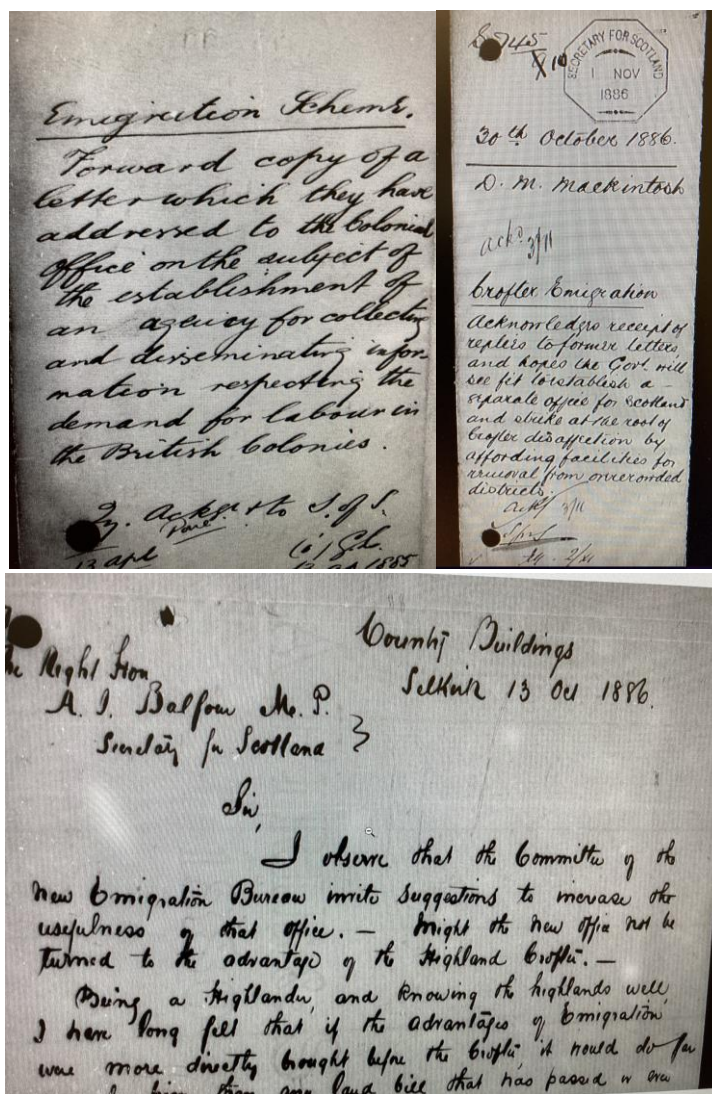 Emigration Scheme.
Forward copy of a
letter which they have
addressed to the Colonial
Office on the subject of
the establishment of
an agency for collecting
and disseminating infor-
mation respecting the
demand for labour in
the British Colonies.
Qy. Ackge. & to S. of S.
13 Apl
1885
SECRETARY FOR SCOTLAND
1 NOV
1886
30th October 1886.
D. M. Mackintosh
Ackd 3/11
Crofter Emigration
Acknowledges receipt of
replies to former letters,
and hopes the Govt. will
see fit to establish a
separate office for Scotland
and strike at the root of
Crofter disaffection by
affording facilities for
removal from overcrowded
districts.
Ackd 3/11
County Buildings
Selkirk 13 Oct 1886.
The Right Hon
A. J. Balfour M.P.
Secretary for Scotland
Sir,
I observe that the Committee of the
New Emigration Bureau invite suggestions to increase the
usefulness of that office. — Might the new office not be
turned to the advantage of the Highland Crofter. —
Being a Highlander, and knowing the highlands well,
I have long felt that if the advantages of Emigration
were more directly brought before the Crofter, it would do far
than any land bill that has passed or ever